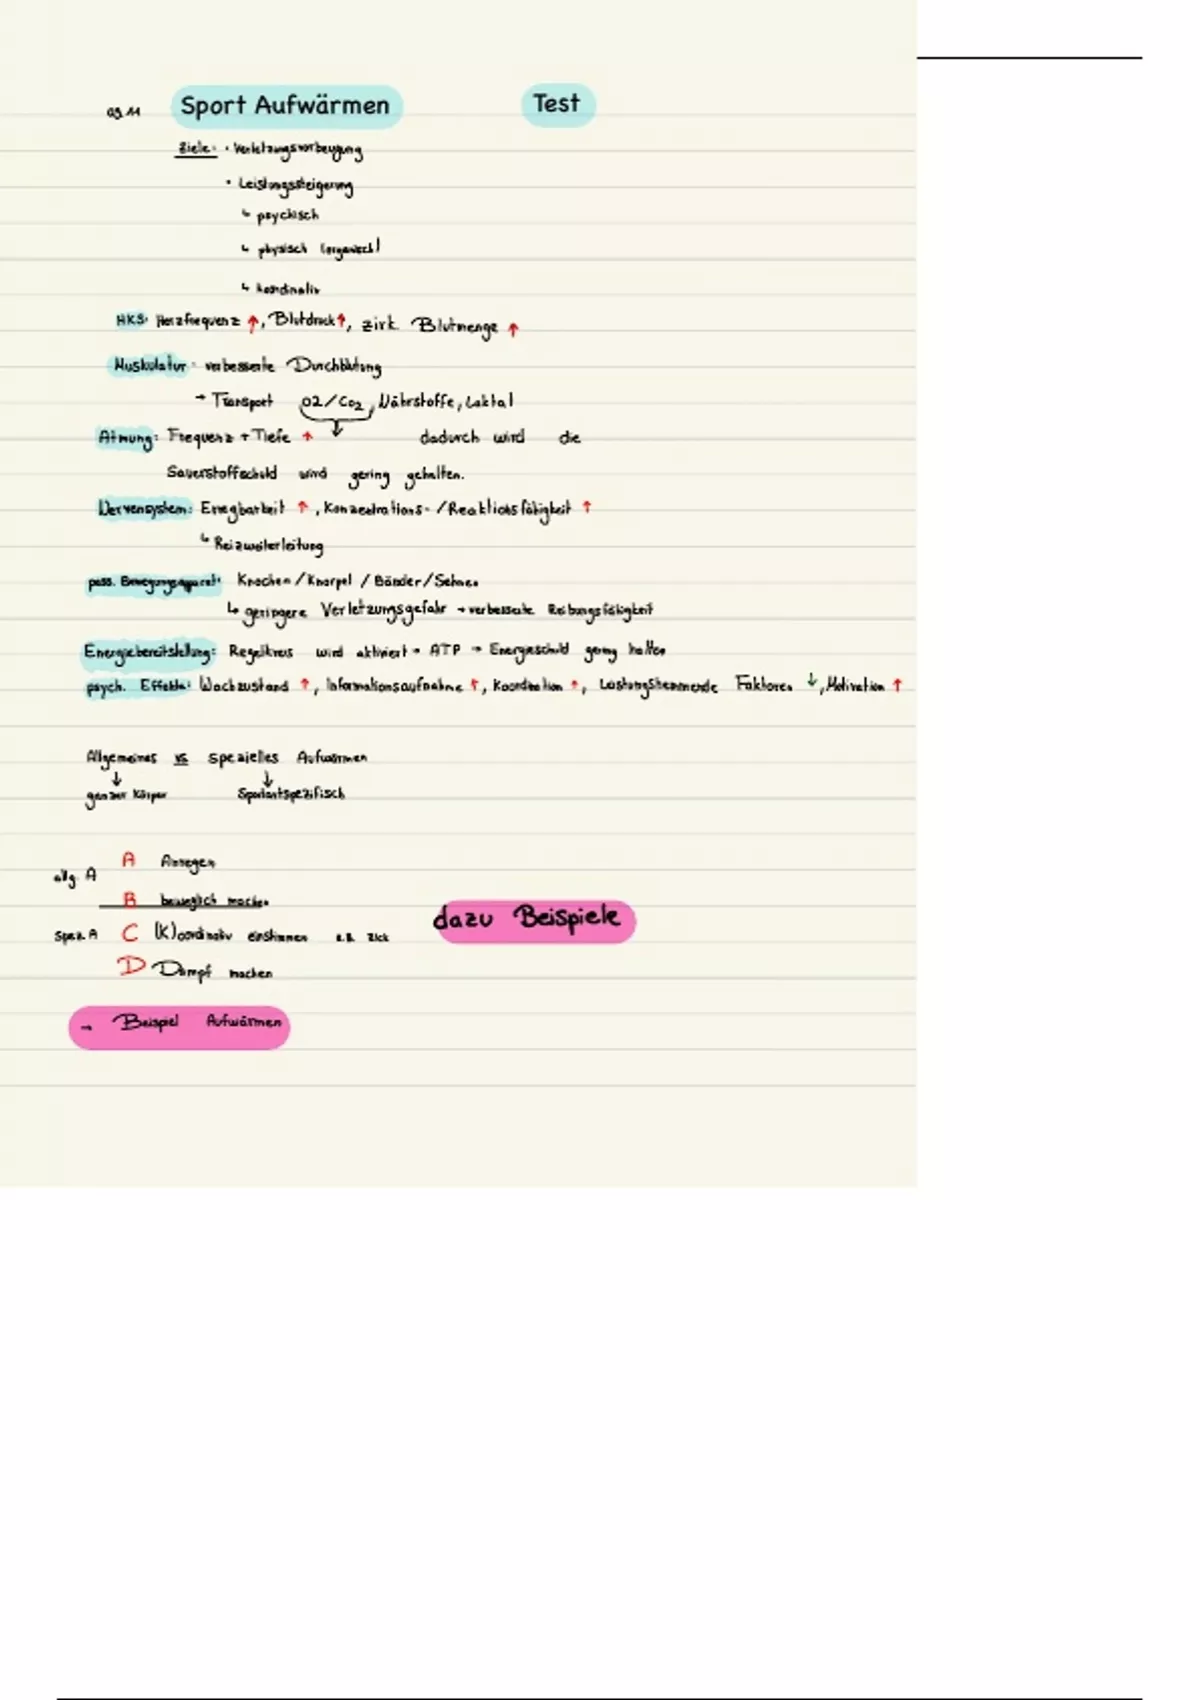 09.11 Sport Aufwärmen Test
Ziele: • Verletzungsvorbeugung
• Leistungssteigerung
↳ psychisch
↳ physisch
↳ koordinativ
HKS: Herzfrequenz ↑, Blutdruck ↑, zirk. Blutmenge ↑
Muskulatur: verbesserte Durchblutung
→ Transport O2/CO2, Nährstoffe, Laktat
Atmung: Frequenz + Tiefe ↑ ↓ dadurch wird die
Sauerstoffschuld wird gering gehalten.
Nervensystem: Erregbarkeit ↑, Konzentrations-/Reaktionsfähigkeit ↑
↳ Reizweiterleitung
pass. Bewegungsapparat: Knochen/Knorpel/Bänder/Sehnen
↳ geringere Verletzungsgefahr → verbesserte Reibungsfähigkeit
Energiebereitstellung: Regelkreis wird aktiviert → ATP → Energieschuld gering halten
psych. Effekte: Wachzustand ↑, Informationsaufnahme ↑, Koordination ↑, Leistungshemmende Faktoren ↓, Motivation ↑
Allgemeines vs spezielles Aufwärmen
↓ ↓
ganzer Körper Sportartspezifisch
allg. A A Anregen
B beweglich machen
dazu Beispiele
spez. A C (K)oordinativ einstimmen z.B. Zick
D Dampf machen
→ Beispiel Aufwärmen